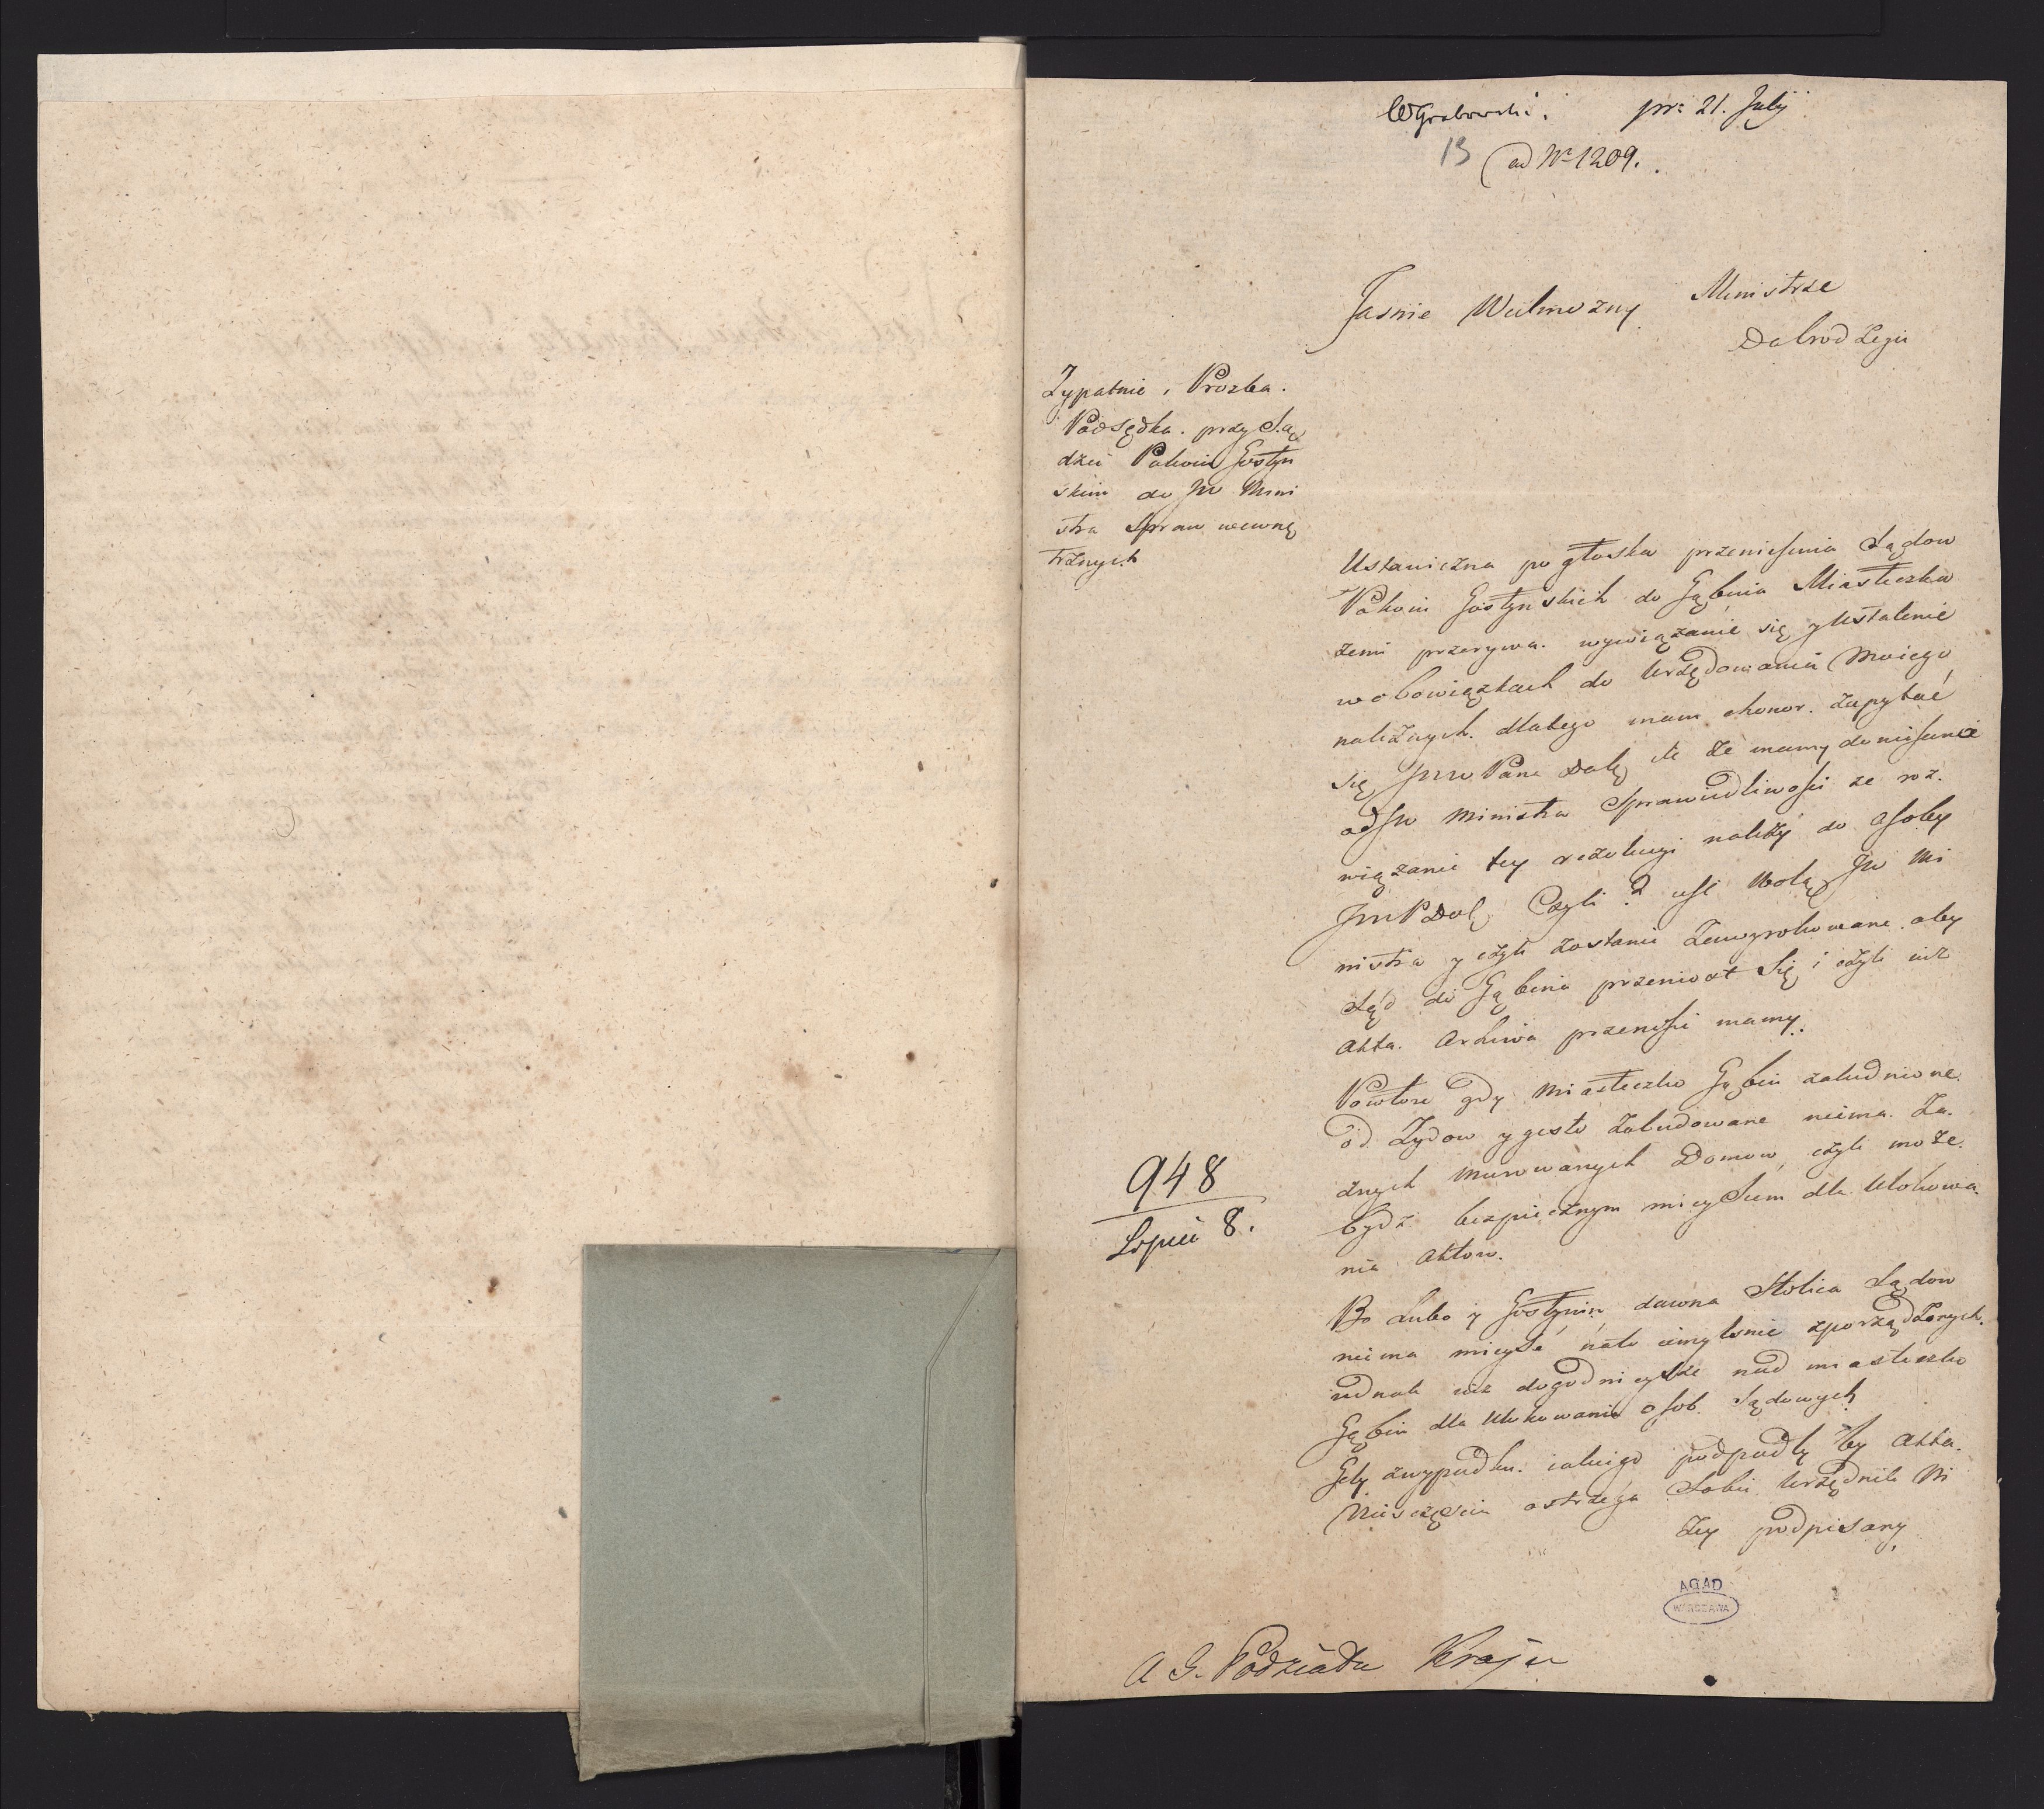 WGrabowski. pr: 21. July
13 ad Nr 1209.
Jasnie Wielmozny Ministrze
Dobrodzeju
Zypatnie i Prozba.
Podsędka. przy Są
dzei Pokoiu Gostyn
skim do JW Mini
stra Spraw wewnę
trznych
Ustawiczna pogłoska przeniesienia Sądow
Pokoiu Gostynskich do Gąbina Miasteczka
ziemi przerywa. wywiązanie się y Ustalenie
w obowiązkach do Urzędowania Moiego
należnych. dlatego mam honor. Zapytać
się JWW Pana Dob, ile że mamy doniesienie
od JW Ministra Sprawiedliwości że roz.
wiązanie tey rezolucyi należy do osoby
JWW P Dob, Czyli? iest Wolą JW Mi
nistra y czyli zostanie Zawyrokowane aby
Sąd do Gąbina przeniost Się, i czyli iuż
Akta. Archiwa przenosić mamy.
Powtore gdy Miasteczko Gąbin zaludnione.
od Zydow y gesto Zabudowane niema. Ża.
dnych Murowanych Domow, czyli może.
bydź bezpiecznym mieyscem dla Ulokowa.
nia Aktow.
Bo Lubo y Gostynin, dawna Stolica Sądow
niema mieysc nato umyślnie zporządzonych.
iednak iest dogodnieysze nad miasteczko
Gąbin dla Ulokowania osob Sądowych
Gdy zwypadku. iakiego podpadły by Akta.
Nieszczęsciu ostrzega Sobie Urzędnik Ni
żey podpisany
948
Lipiec 8.
AGAD
WARSZAWA
A G. Podziadu Kraju